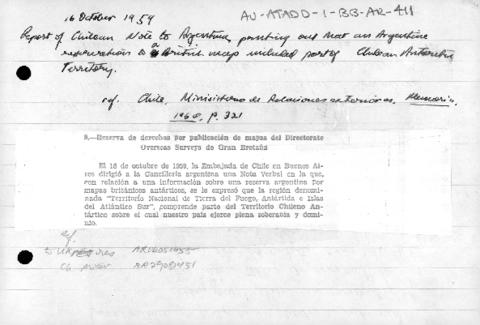 16 October 1959
AU-ATADD-1-BB-AR-411
Report of Chilean Note to Argentina, pointing out that an Argentine
reservation to a British map included part of Chilean Antarctic
Territory.
ref. Chile, Ministerio de Relaciones exteriores, Memoria,
1960, p. 321
Reserva de derechos por publicación de mapas del Directorate
Overseas Surveys de Gran Bretaña
El 16 de octubre de 1959, la Embajada de Chile en Buenos Ai-
res dirigió a la Cancillería argentina una Nota Verbal en la que,
con relación a una información sobre una reserva argentina por
mapas británicos antárticos, se le expresó que la región denomi-
nada "Territorio Nacional de Tierra del Fuego, Antártida e Islas
del Atlántico Sur", comprende parte del Territorio Chileno An-
tártico sobre el cual nuestro país ejerce plena soberanía y domi-
nio.
rf.